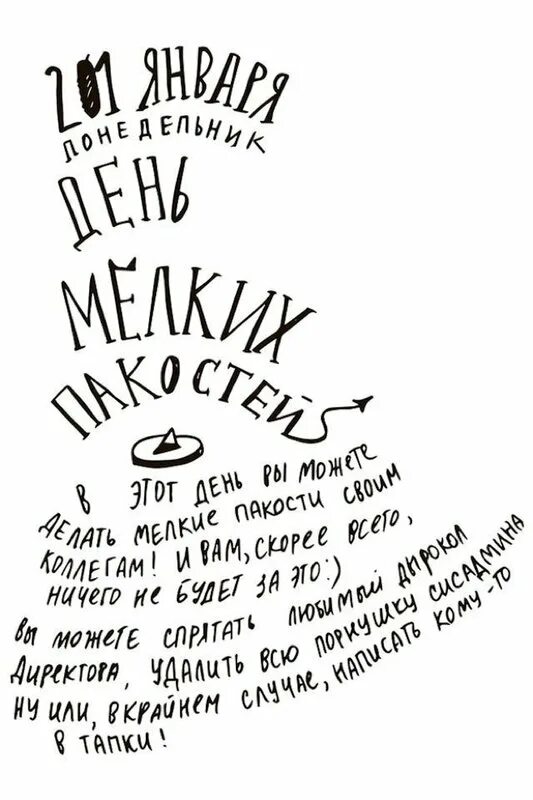 21 ЯНВАРЯ
ПОНЕДЕЛЬНИК
ДЕНЬ
МЕЛКИХ
ПАКОСТЕЙ
В ЭТОТ ДЕНЬ ВЫ МОЖЕТЕ
ДЕЛАТЬ МЕЛКИЕ ПАКОСТИ СВОИМ
КОЛЛЕГАМ! И ВАМ, СКОРЕЕ ВСЕГО,
НИЧЕГО НЕ БУДЕТ ЗА ЭТО:)
ВЫ МОЖЕТЕ СПРЯТАТЬ ЛЮБИМЫЙ ДЫРОКОЛ
ДИРЕКТОРА, УДАЛИТЬ ВСЮ ПОРНУШКУ СИСАДМИНА
НУ ИЛИ, В КРАЙНЕМ СЛУЧАЕ, НАПИСАТЬ КОМУ-ТО
В ТАПКИ!